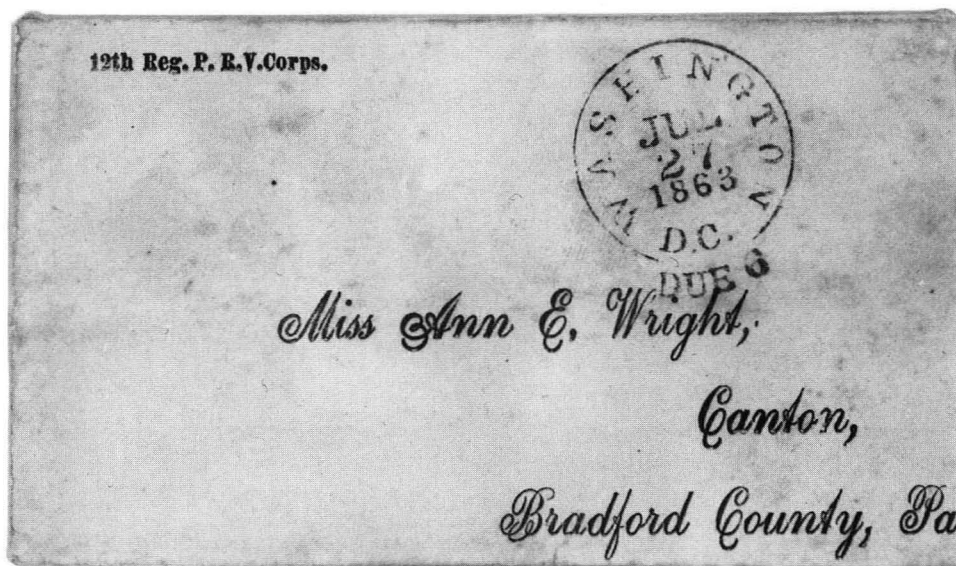 12th Reg. P. R.V.Corps.
WASHINGTON
JUL
27
1863
D.C.
DUE 6
Miss Ann E. Wright,
Canton,
Bradford County, Pa